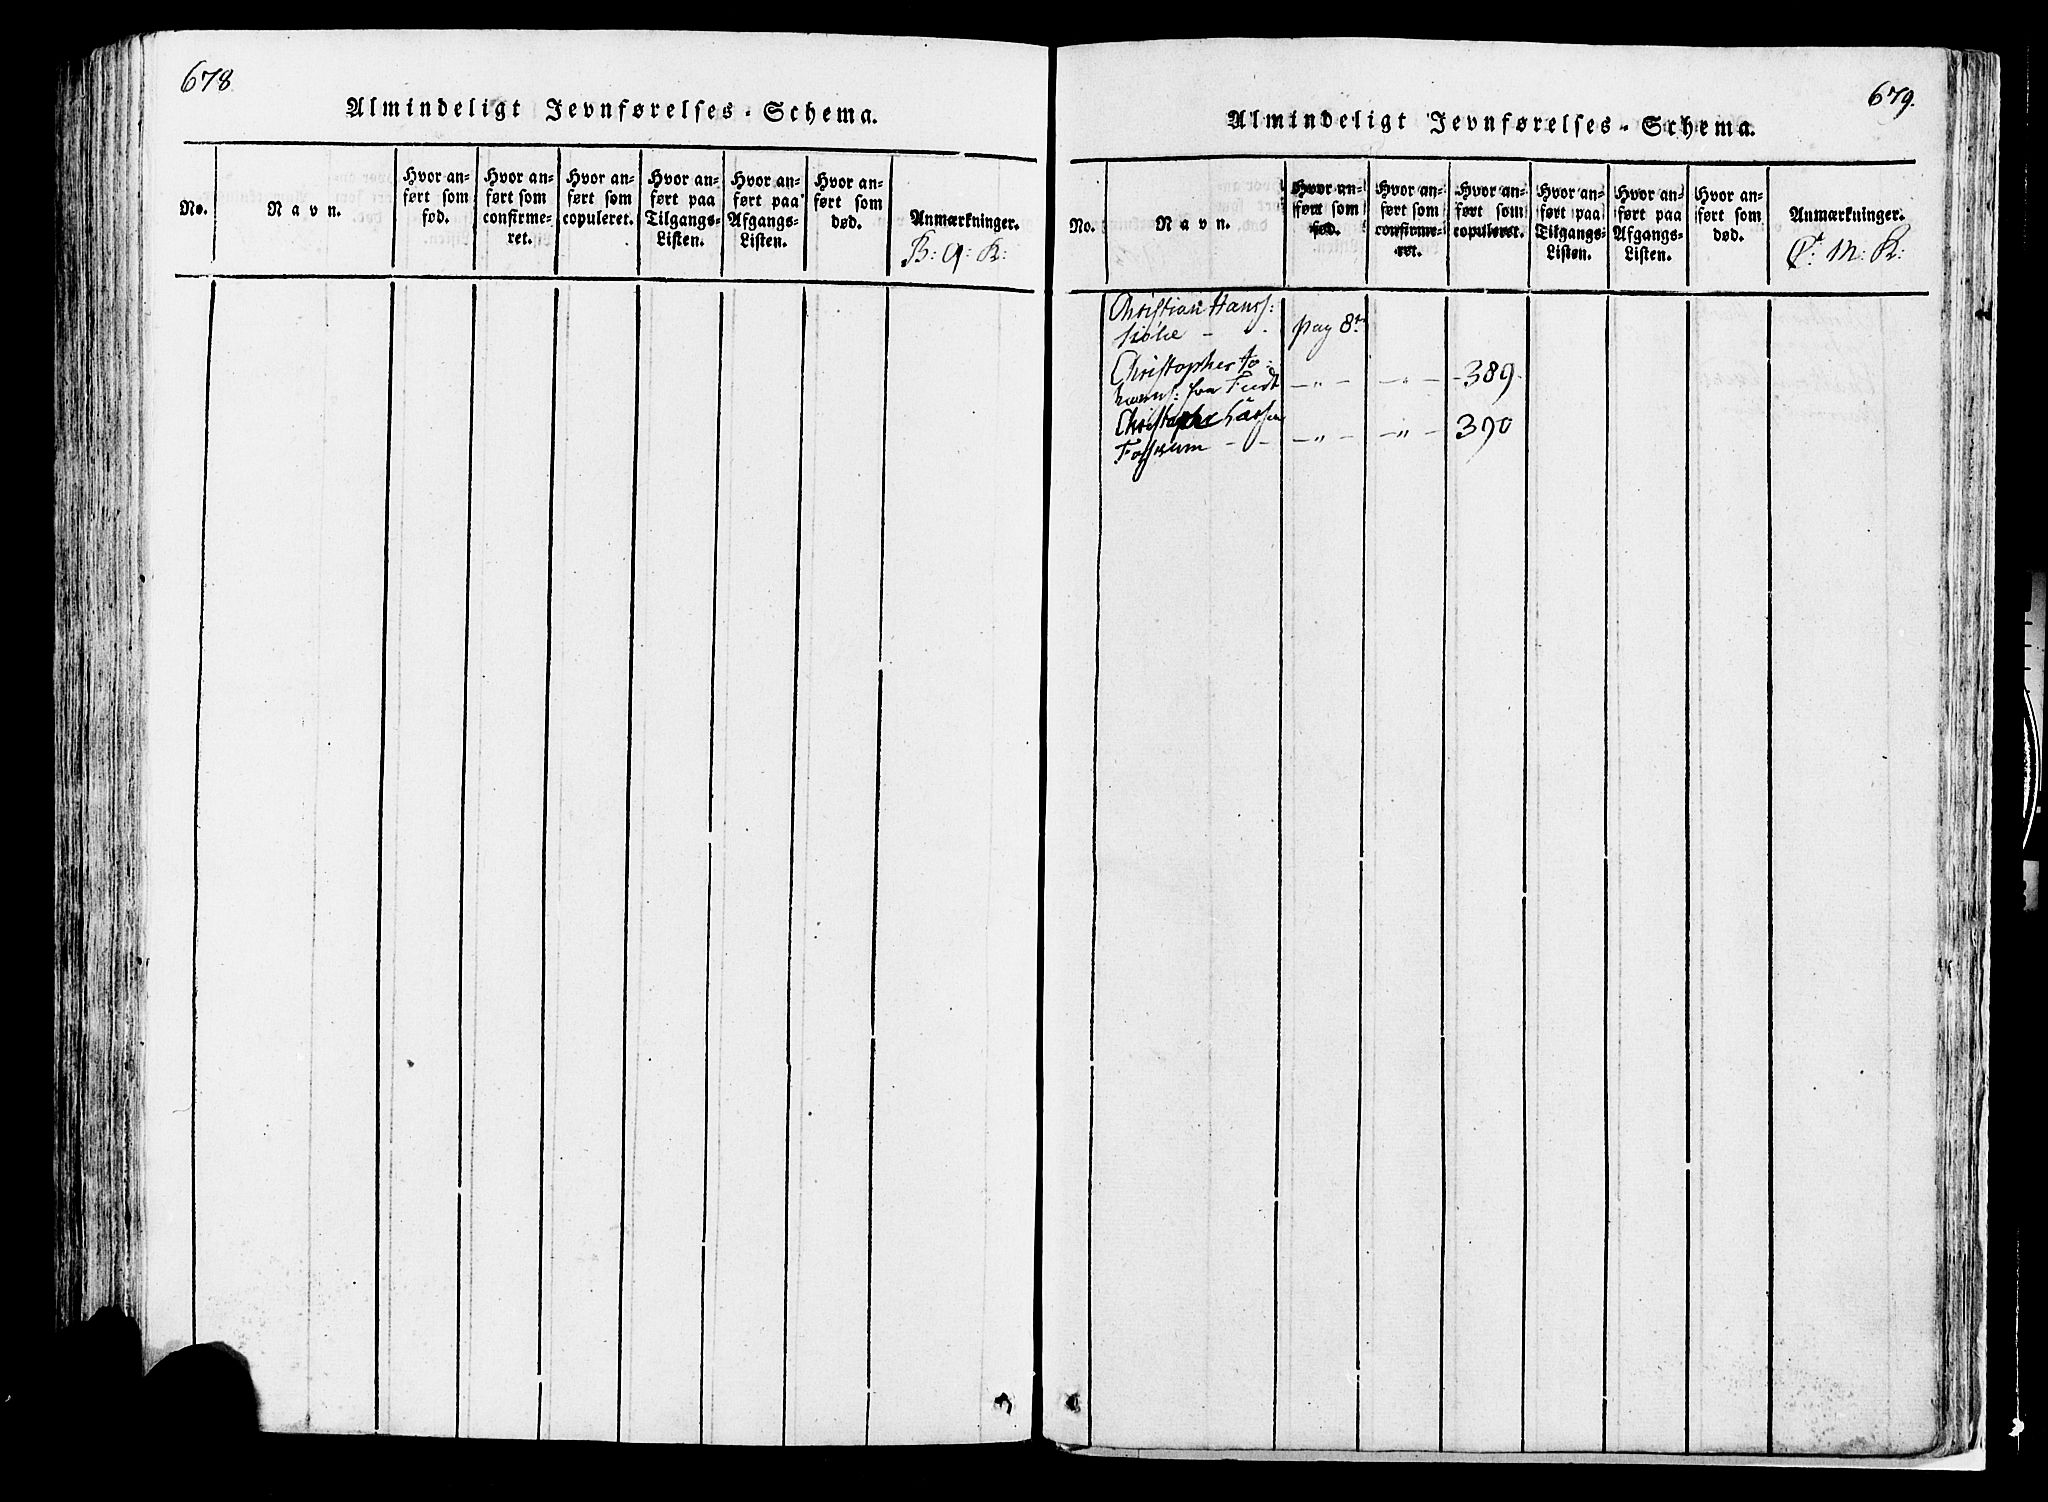 678
Almindeligt Jevnførelses-Schema.
No.
Navn.
Hvor an-
ført som
fød.
Hvor an-
ført som
confirme-
ret.
Hvor an-
ført som
copuleret.
Hvor an-
ført paa
Tilgangs-
Listen.
Hvor an-
ført paa
Afgangs-
Listen.
Hvor an-
ført som
død.
Anmærkninger.
679.
Almindeligt Jevnførelses-Schema.
No.
Navn.
Hvor an-
ført som
fød.
Hvor an-
ført som
confirme-
ret.
Hvor an-
ført som
copuleret.
Hvor an-
ført paa
Tilgangs-
Listen.
Hvor an-
ført paa
Afgangs-
Listen.
Hvor an-
ført som
død.
Anmærkninger.
M: K:
Christian Hanss:
pag 8
Christopher
fra - " - - " - -389-
Christopher Larsen
Fossum - - - " - - " - 390